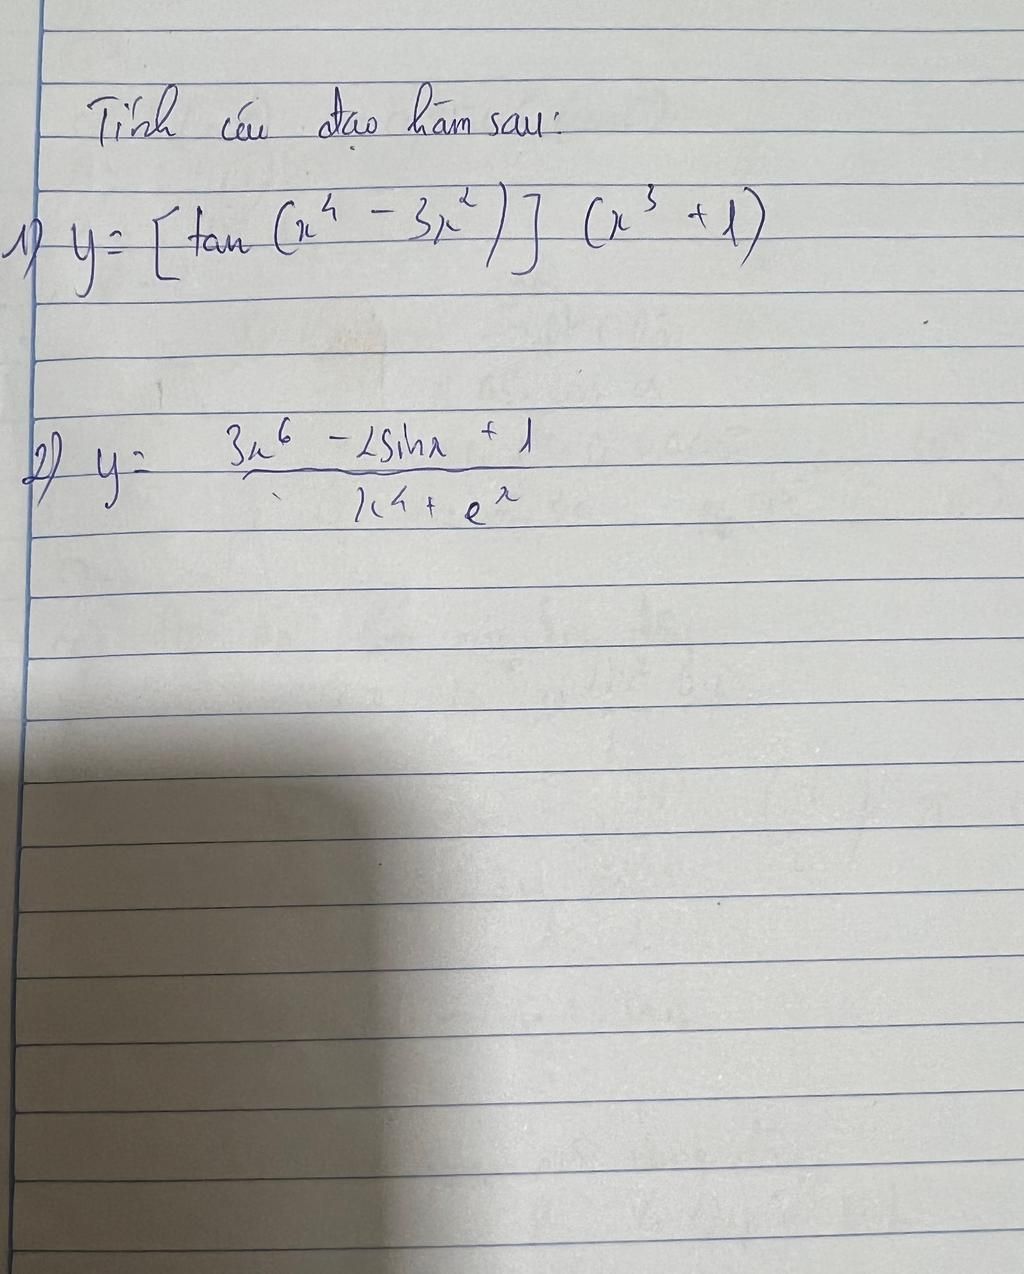 Tính các đạo hàm sau:
1) y = [tan (x⁴ - 3x²)] (x³ + 1)
2) y = (3x⁶ - 2sinx + 1) / (x⁴ + eˣ)